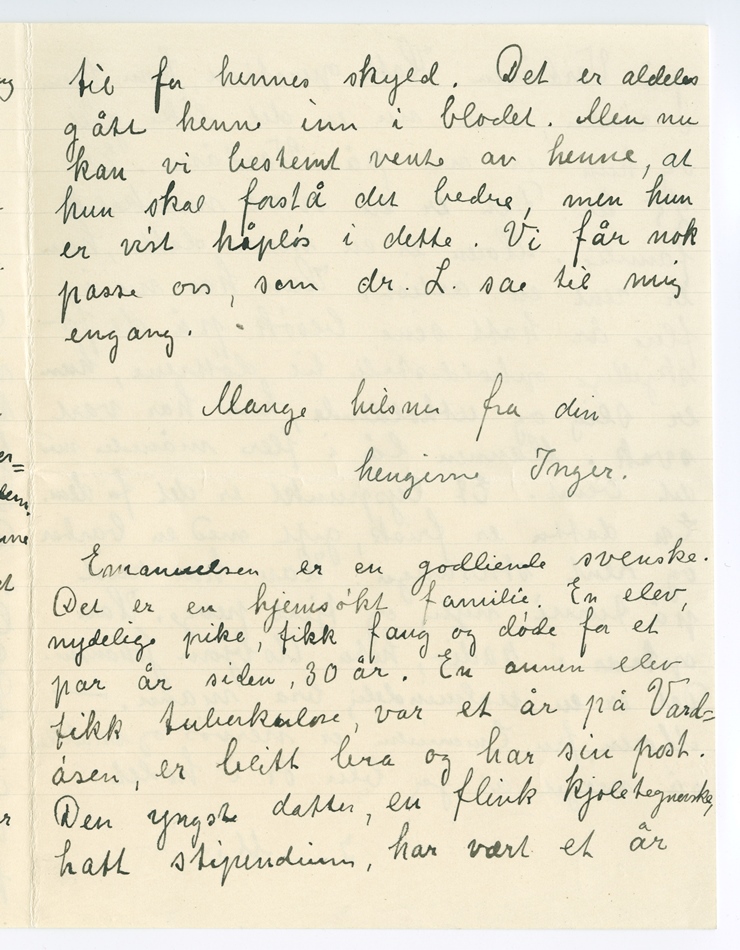 til for hennes skyld. Det er aldeles
gått henne inn i blodet. Men nu
kan vi bestemt vente av henne, at
hun skal forstå det bedre, men hun
er visst håpløs i dette. Vi får nok
passe oss, som dr. L. sae til mig
engang.
Mange hilsner fra din
hengivne Inger.
Emanuelsen er en godliende svenske.
Det er en hjemsøkt familie. En elev,
nydelige pike, fikk faug og døde for et
par år siden, 30 år. En annen elev
fikk tuberkulose, var et år på Vard=
åsen, er blitt bra og har sin post.
Den yngste datter, en flink kjoletegnerske,
hatt stipendium, har vært et år